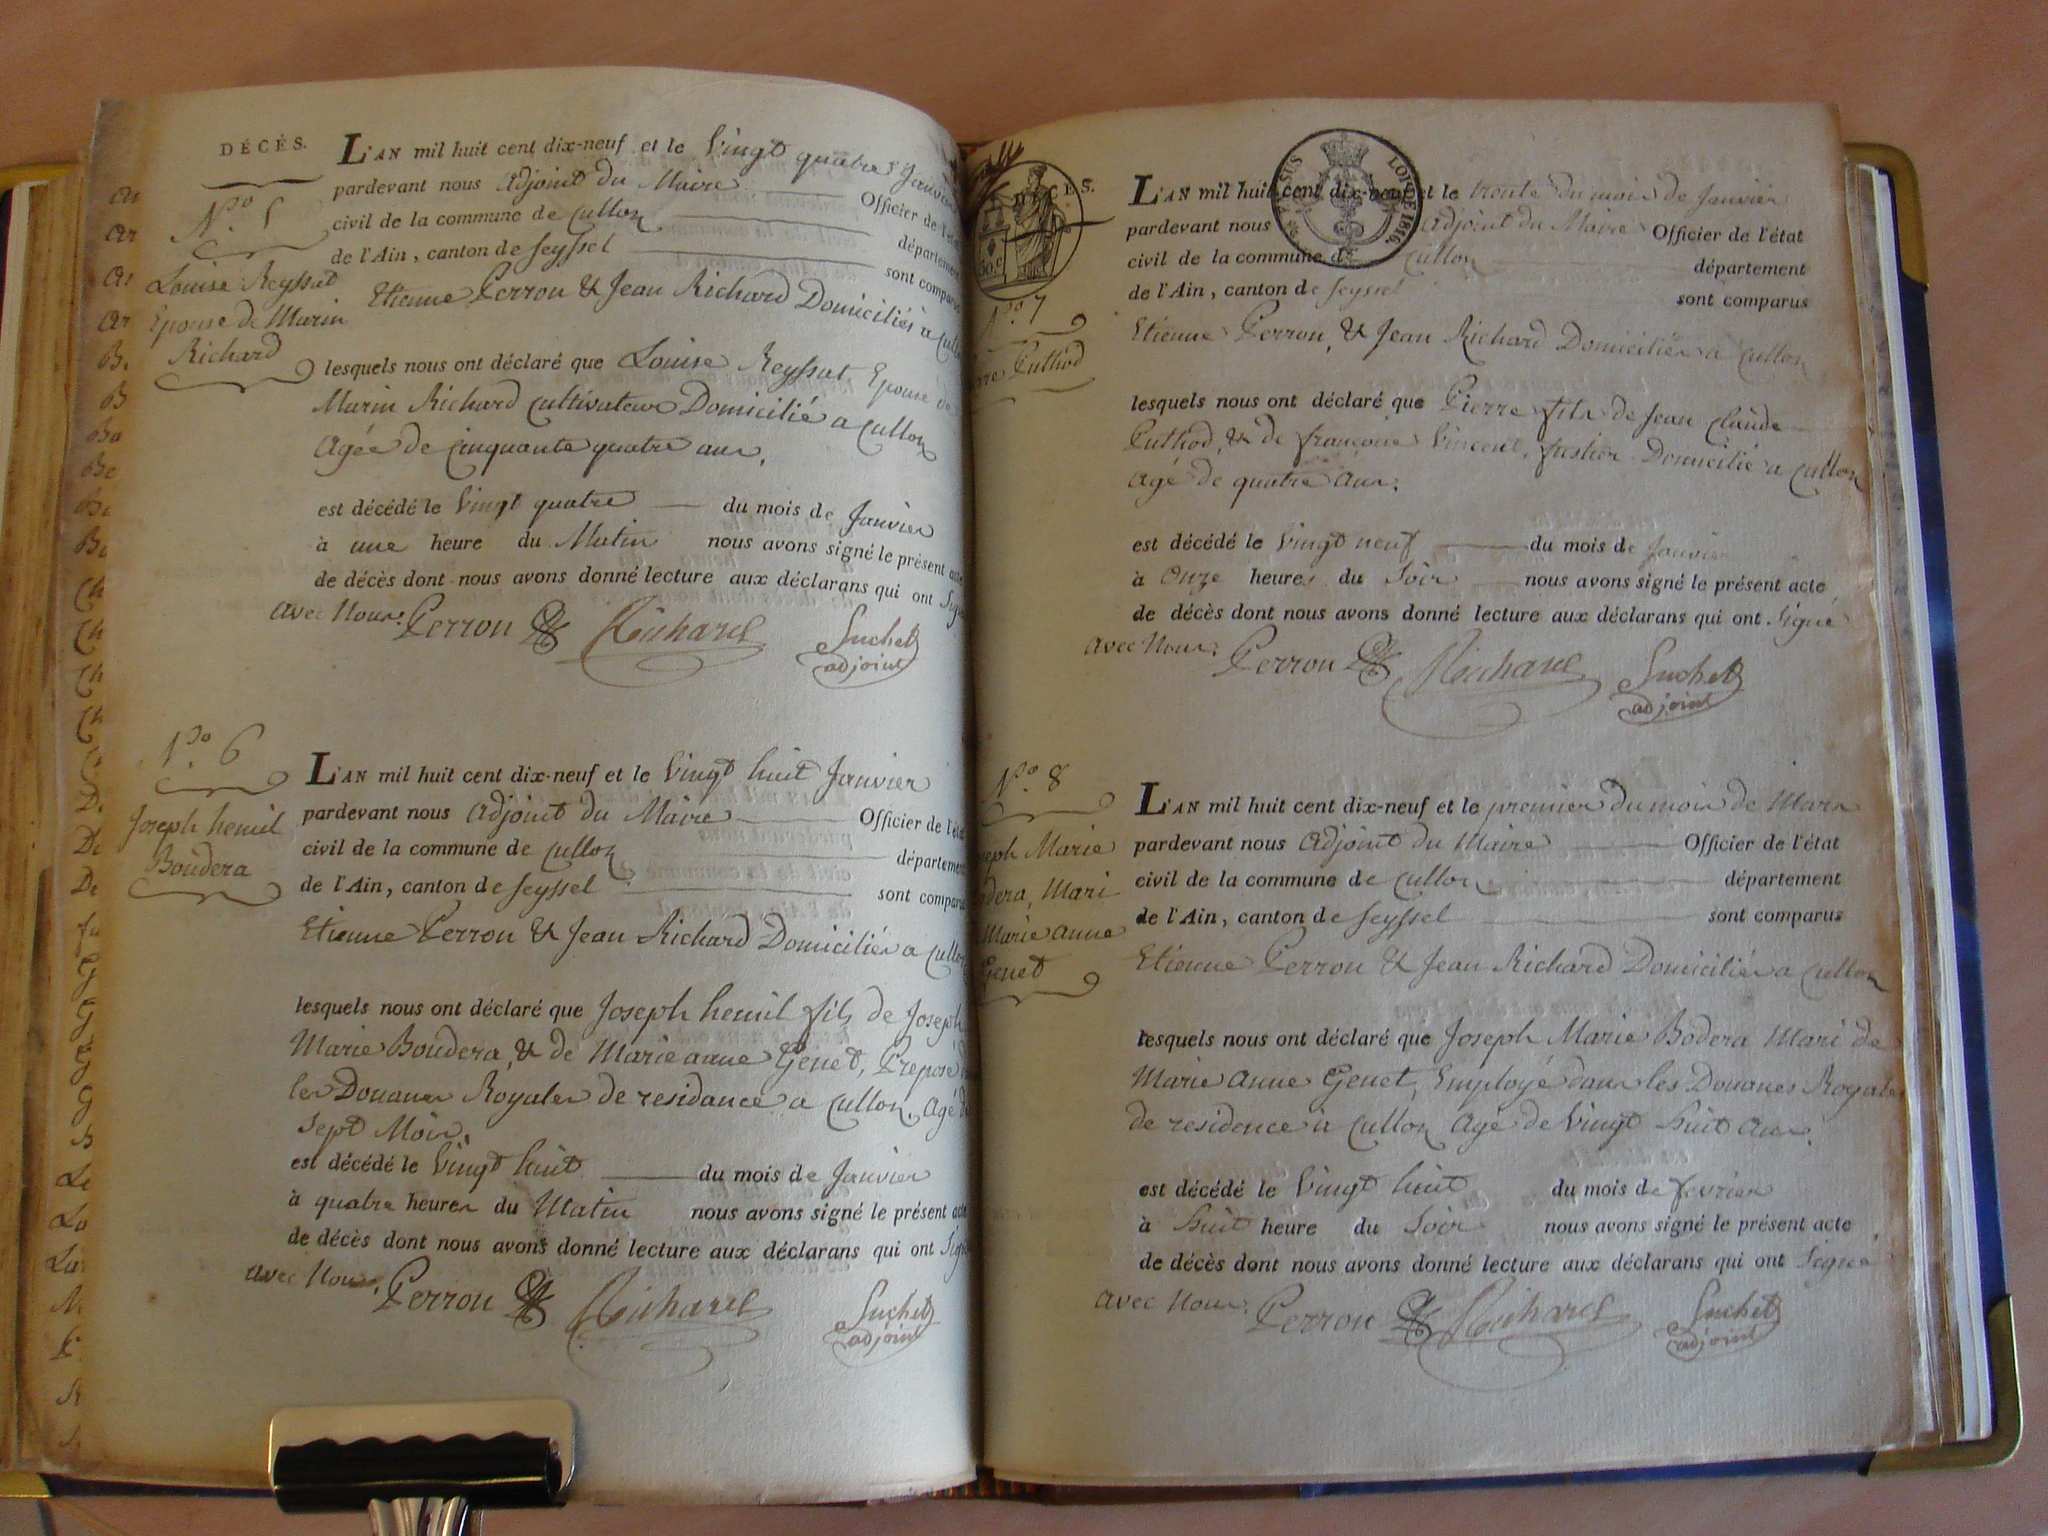 DÉCÈS.
N.º 5
Louise Reyssat
Epouse de Marin
Richard
L'AN mil huit cent dix-neuf et le Vingt quatre Janvier
pardevant nous Adjoint du Maire Officier de l'état
civil de la commune de Culloz département
de l'Ain, canton de Seyssel sont comparus
Etienne Perron & Jean Richard Domiciliés à Culloz
lesquels nous ont déclaré que Louise Reyssat Epouse de
Marin Richard Cultivateur Domicilié a Culloz
Agée de Cinquante quatre ans.
est décédé le Vingt quatre du mois de Janvier
à une heure du Matin nous avons signé le présent acte
de décès dont nous avons donné lecture aux déclarans qui ont Signé
avec Nous. Perron Richard Suchet
adjoint
N.º 6
Joseph hemil
Boudera
L'AN mil huit cent dix-neuf et le Vingt huit Janvier
pardevant nous Adjoint du Maire Officier de l'état
civil de la commune de Culloz département
de l'Ain, canton de Seyssel sont comparus
Etienne Perron & Jean Richard Domiciliés a Culloz
lesquels nous ont déclaré que Joseph hemil fils de Joseph
Marie Boudera, & de Marie anne Genet, Preposé
les Douanes Royales de residance a Culloz, Agé de
Sept Mois.
est décédé le Vingt huit du mois de Janvier
à quatre heures du Matin nous avons signé le présent acte
de décès dont nous avons donné lecture aux déclarans qui ont Signé
avec Nous. Perron Richard Suchet
adjoint
LOI DE 1816.
50.c
N.º 7
Puthod
L'AN mil huit cent dix-neuf et le trente du mois de Janvier
pardevant nous Adjoint du Maire Officier de l'état
civil de la commune de Culloz département
de l'Ain, canton de Seyssel sont comparus
Etienne Perron, & Jean Richard Domiciliés a Culloz
lesquels nous ont déclaré que Pierre fils de Jean Claude
Puthod, & de françoise Vincent, Domicilié a Culloz
Agé de quatre Ans.
est décédé le Vingt neuf du mois de Janvier
à Onze heures du Soir nous avons signé le présent acte
de décès dont nous avons donné lecture aux déclarans qui ont Signé
avec Nous. Perron Richard Suchet
adjoint
N.º 8
Marie
Mari
Marie anne
Genet
L'AN mil huit cent dix-neuf et le premier du mois de Mars
pardevant nous Adjoint du Maire Officier de l'état
civil de la commune de Culloz département
de l'Ain, canton de Seyssel sont comparus
Etienne Perron & Jean Richard Domiciliés a Culloz
lesquels nous ont déclaré que Joseph Marie Bodera Mari de
Marie Anne Genet, Employé dans les Douanes Royales
de residence à Culloz Agé de Vingt huit Ans.
est décédé le Vingt huit du mois de fevrier
à huit heure du Soir nous avons signé le présent acte
de décès dont nous avons donné lecture aux déclarans qui ont Signé
avec Nous. Perron Richard Suchet
adjoint